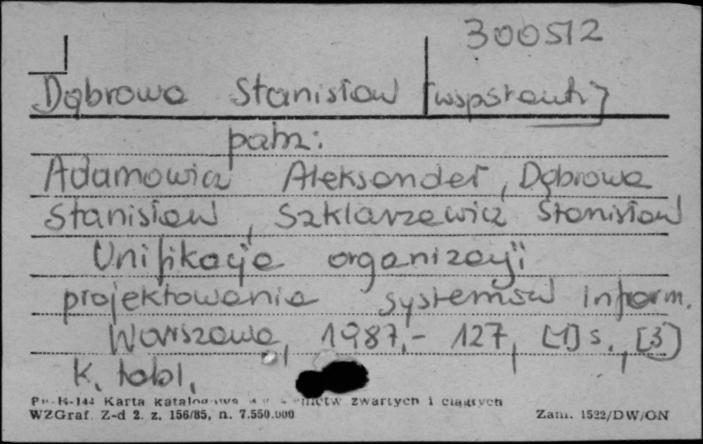 300512
Dąbrowa Stanisław [współaut.]
patrz:
Adamowicz Aleksander, Dąbrowa
Stanisław, Szklarzewicz Stanisław
Unifikacja organizacji
projektowania systemów inform.
Warszawa, 1987.- 127, [1] s., [3]
k. tabl.
Pu-K-144 Karta katalogowa zwartych i ciągłych
WZGraf. Z-d 2. z. 156/85, n. 7.550.000 Zam. 1522/DW/ON